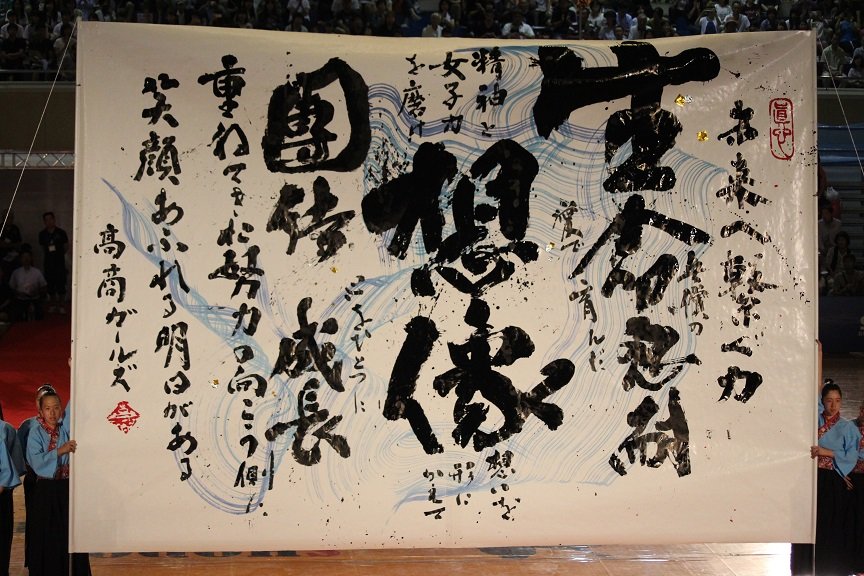 未来へ繋ぐ力
育んだ
生命忍耐
精神と
女子力
を磨け
想像
想いを
形に
かえて
團結 成長
心をひとつに
重ねてきた努力の向こう側に
笑顔あふれる明日がある
高商ガールズ